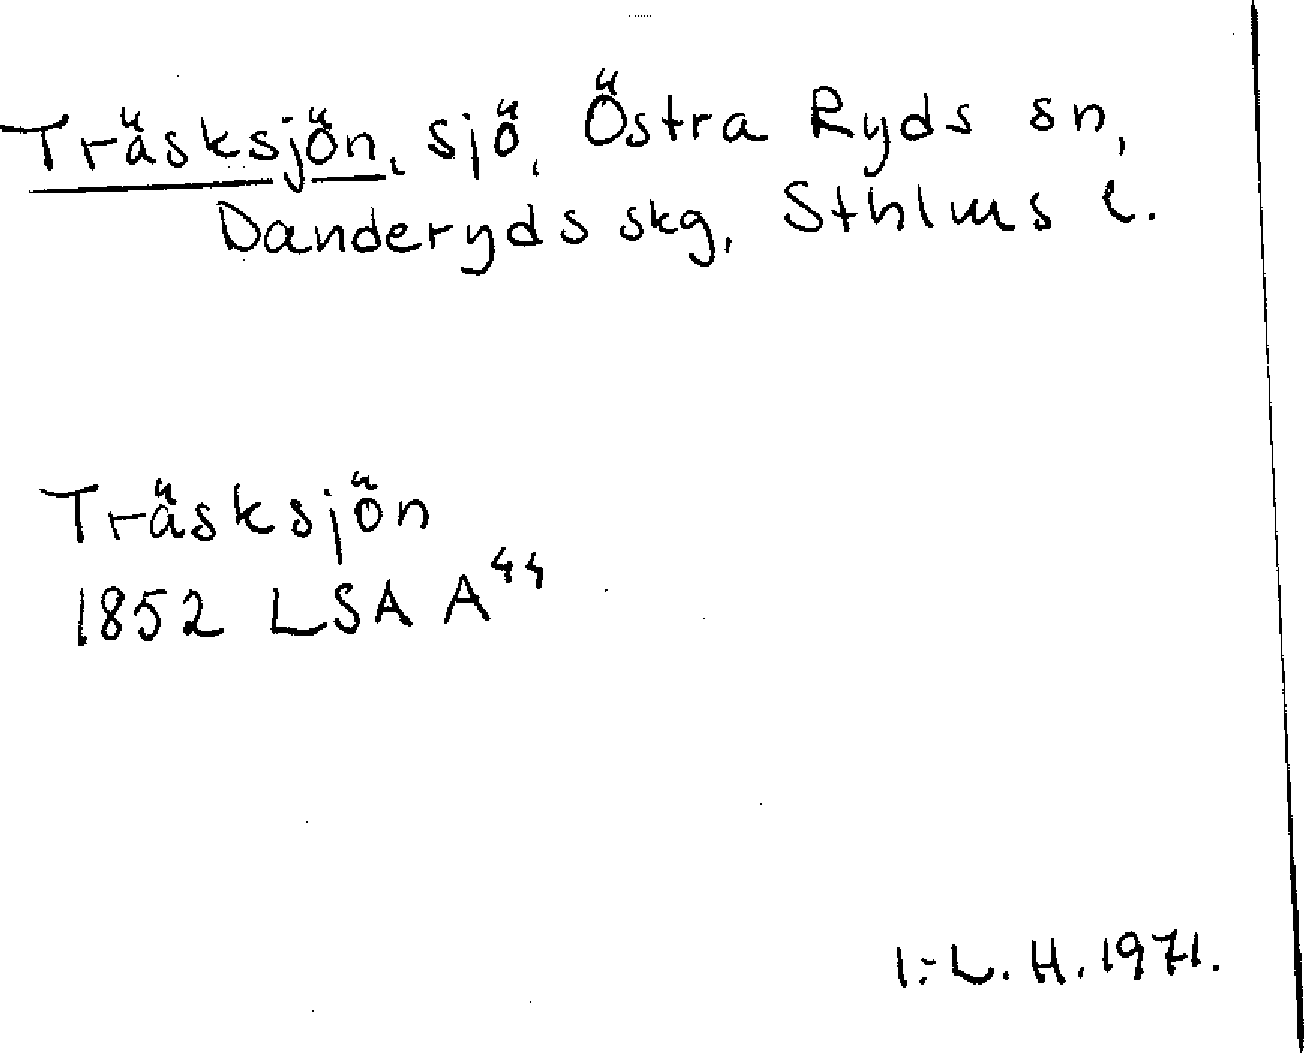 Träsksjön, sjö, Östra Ryds sn,
Danderyds skg, Sthlms l.
Träsksjön
1852 LSA A⁴⁴
I:-L. H. 1971.